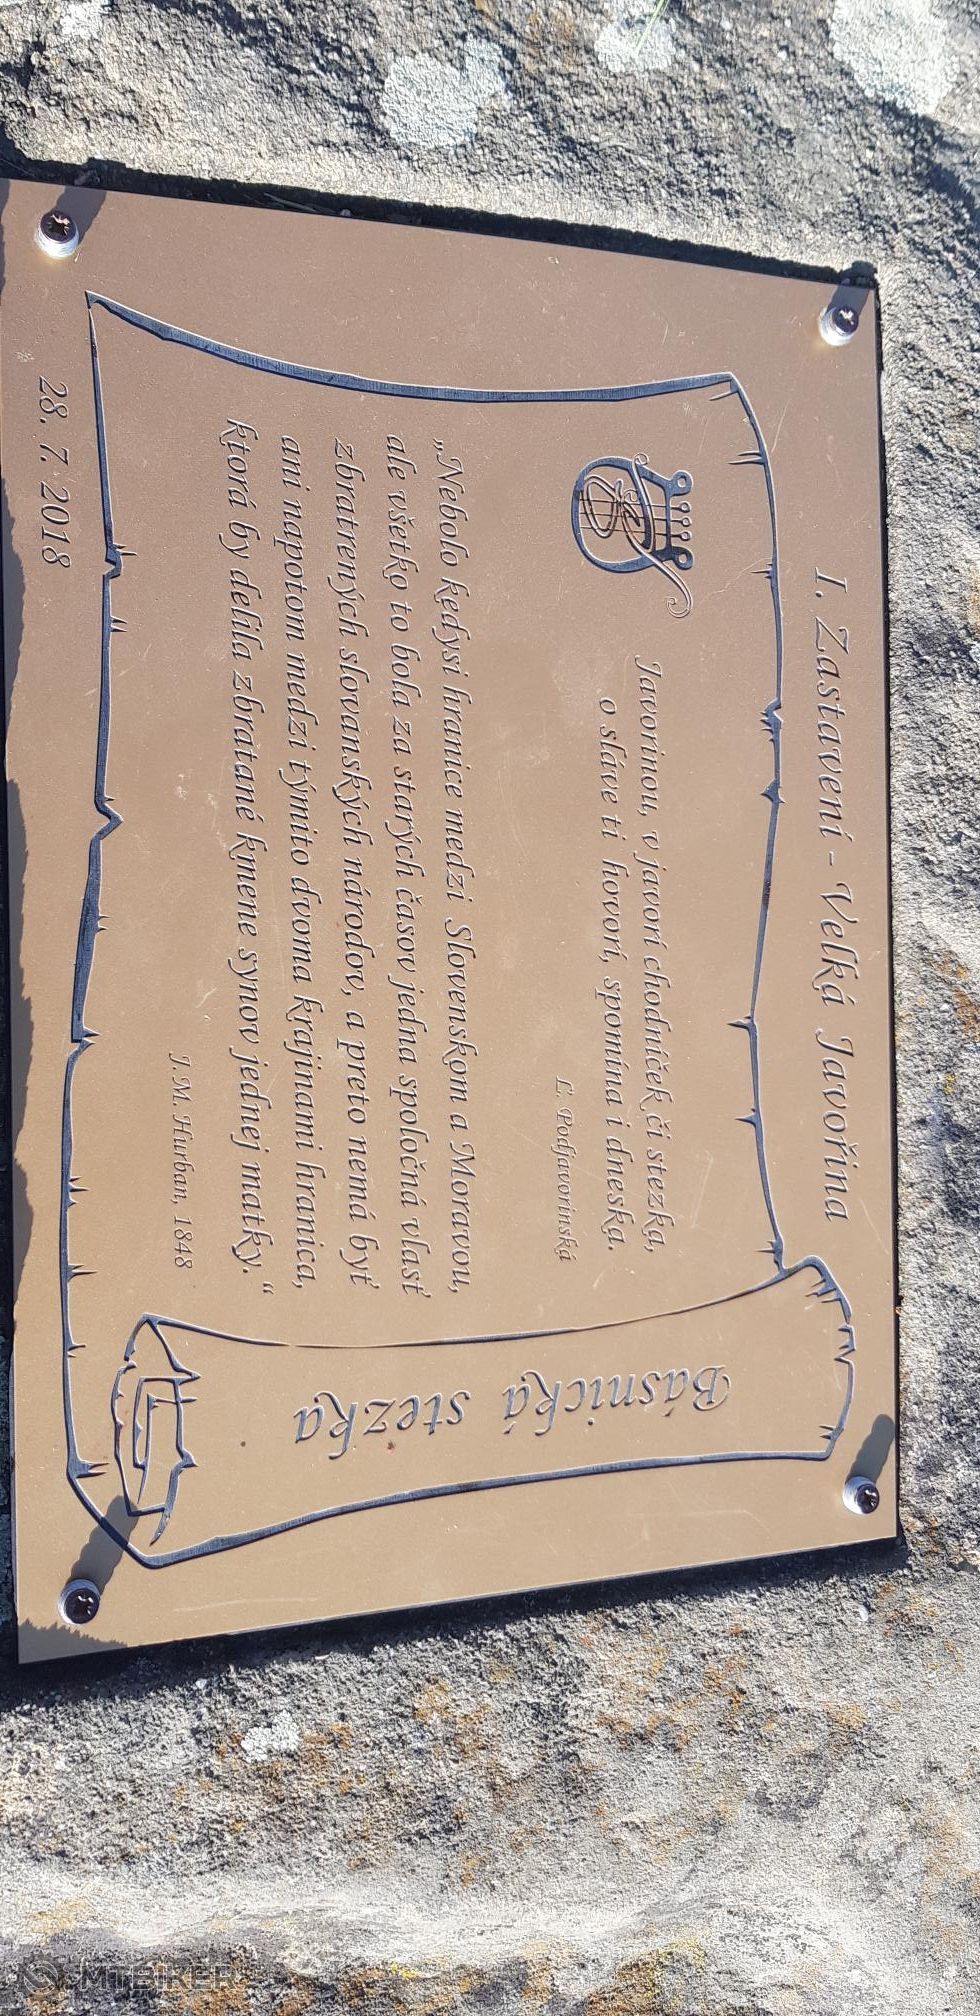 I. Zastavení - Velká Javořina
Javorinou, v javorí chodníček či stezka,
o sláve ti hovorí, spomína i dneska.
Ľ. Podjavorinská
„Nebolo kedysi hranice medzi Slovenskom a Moravou,
ale všetko to bola za starých časov jedna spoločná vlasť
zbratrených slovanských národov, a preto nemá byť
ani napotom medzi týmito dvoma krajinami hranica,
ktorá by delila zbratané kmene synov jednej matky.“
J. M. Hurban, 1848
Básnická stezka
28. 7. 2018
MTBIKER